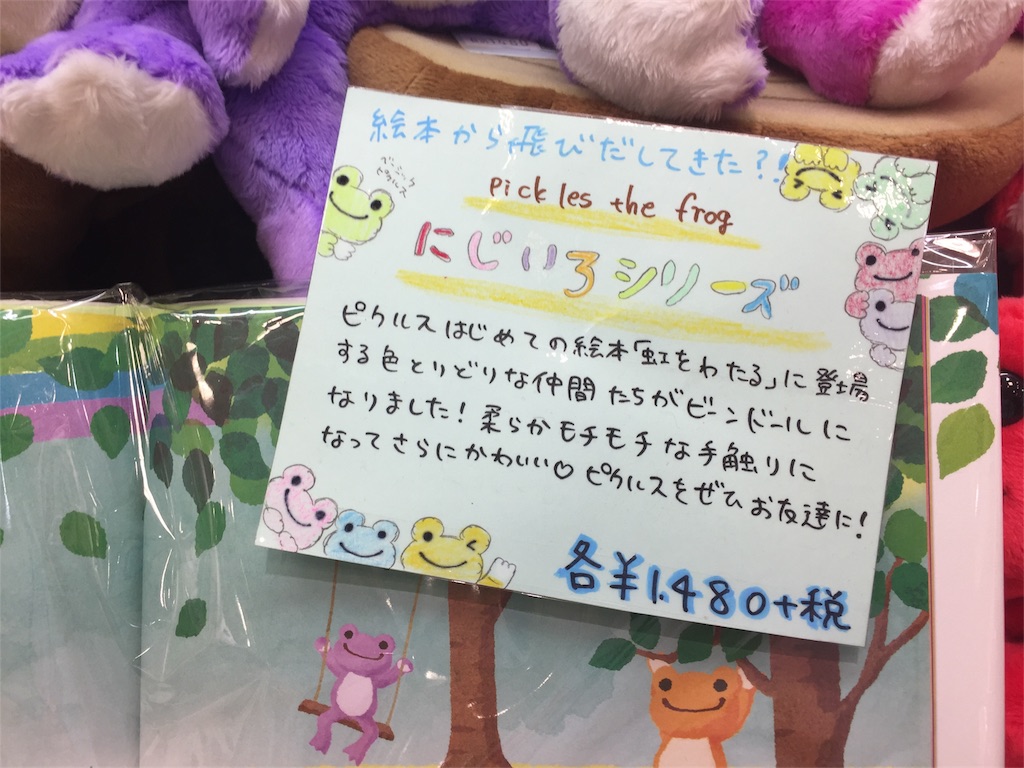 絵本から飛びだしてきた?!
ベーシック
ピクルス
pickles the frog
にじいろシリーズ
ピクルスはじめての絵本「虹をわたる」に登場
する色とりどりな仲間たちがビーンドールに
なりました!柔らかモチモチな手触りに
なってさらにかわいい♡ピクルスをぜひお友達に!
各¥1.480+税